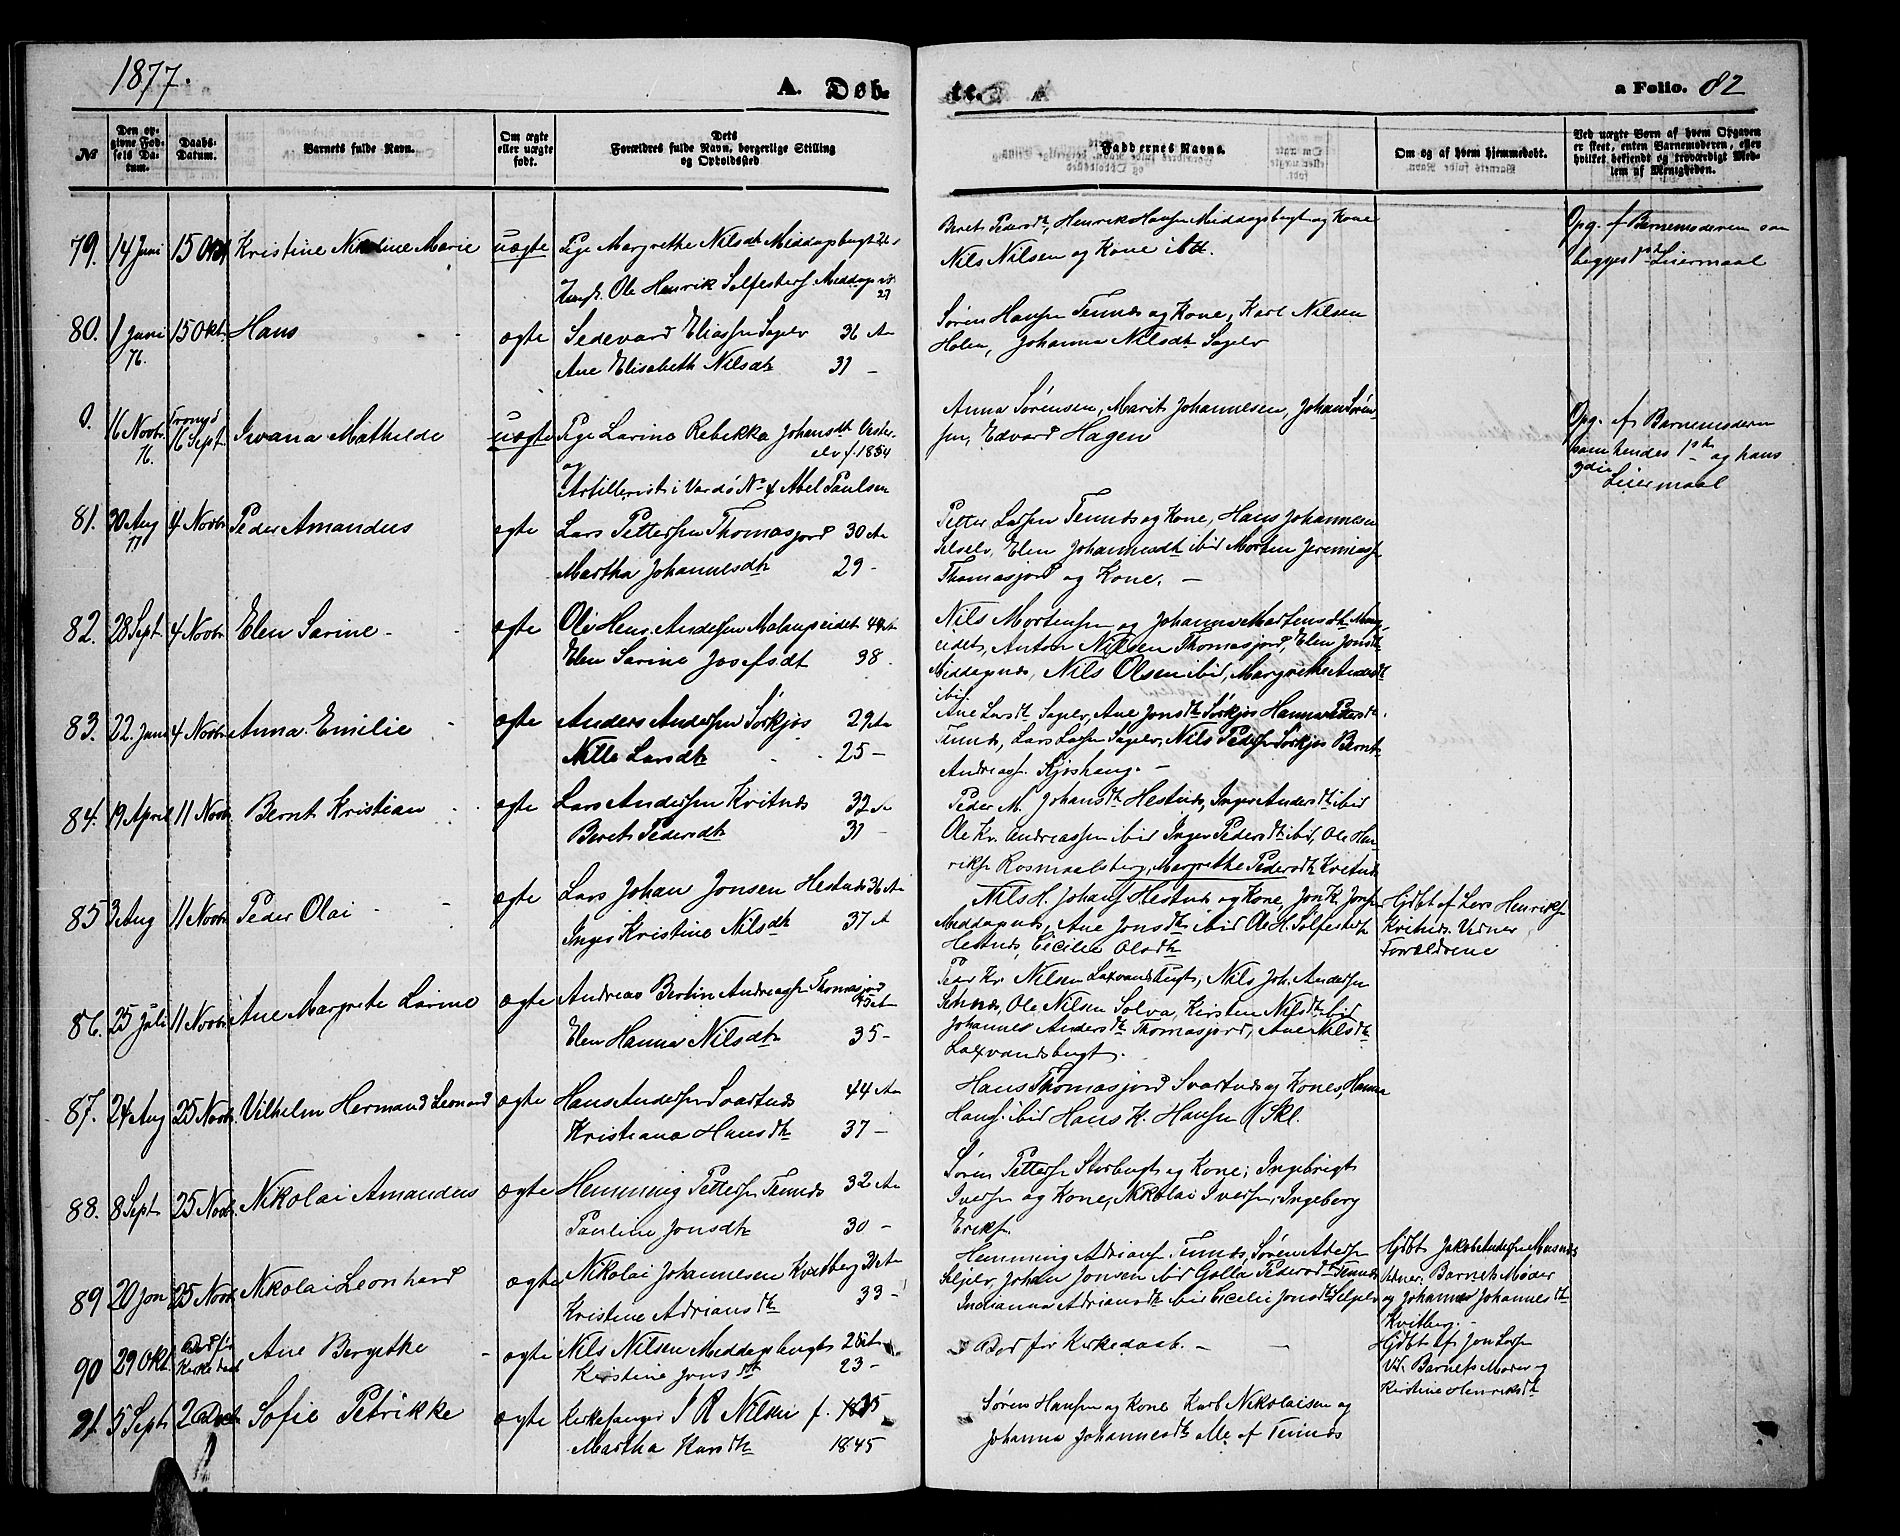 1877.
A. Døb-
te.
a Folio. 82
№
Den op-
givne Fød-
sels Da-
tum.
Daabs-
Datum.
Barnets fulde Navn.
Om ægte
eller uægte
født.
Dets
Forældres fulde Navn, borgerlige Stilling
og Opholdssted
Faddernes Navne.
Om og af hvem hjemmedøbt.
Ved uægte Børn af hvem Opgaven
er skeet, enten Barnemoderen, eller
hvilket bekjendt og troværdigt Med-
lem af Menigheden.
79. 14 Juni 15 Okt Kristine Nikoline Marie uægte Pige Margrethe Nilsdt Middagsbugt
Ungk. Ole Henrik Solfesters Middags
27
Beret Pedersdt, Henrik Hansen Middagsbugt og Kone
Nils Nilsen og Kone ibd.
Opg. f Barnemoderen som
begges Leiermaal
80. 1 Juni 15 Okt. Hans ægte Sedevard Eliassen Sagelv 36 Ar
76. Ane Elisabeth Nilsdt 31 -
Søren Hansen Tennes og Kone, Karl Nilsen
Holen, Johanna Nilsdt Sagelv
0. 16 Novbr. Tromsø
76. 16 Sept Iwana Mathilde uægte Pige Larine Rebekka Johansdt Vester-
elv f. 1854
og
Artillerist i Vardø No 4 Abel Paulsen
Anna Sørensen, Marit Johannesen, Johan Søren-
sen, Edvard Hagen
Opg. af Barnemoderen
som hendes 1ste og hans
Leiermaal
81. 30 Aug 4 Novbr Peder Amandus ægte Lars Pettersen Thomasjord 30 Ar
77 Martha Johannesdt 29 -
Petter Larsen Tennes og Kone, Hans Johannesen
Selselv, Elen Johannesdt ibid Morten Jeremiass
Thomasjord og Kone. -
82. 28 Sept 4 Novbr Elen Sarine - ægte Ole Hen. Andersen Malangseidet 44
Elen Sarine Josefsdt 38.
Nils Mortensen og Johanna Martensdt Mang-
eidet, Anton Nilsen Thomasjord, Elen Jonsdt
Middagsnes, Nils Olsen ibid, Margrethe Andersdt
ibid
83. 22. Juni 4 Novbr Anna Emilie - ægte Anders Andersen Sørkjos 29 Ar
Nille Larsdt 25 -
Ane Larsdt Sagelv, Ane Jonsdt Sørkjos Hanna Pedersdt.
Tennes, Lars Larsen Sagelv, Nils Pedersen Sørkjos Bernt
Andreass. Kjoshaug. -
84. 19 April 11 Novbr. Bernt Kristian ægte Lars Andersen Kvitnes 32 Ar
Beret Pedersdt 31 -
Peder M. Johansdt Hestnes, Inger Andersdt ibid
Ole Kr. Andreassen ibid Inger Pedersdt ibid, Ole Hen-
riks Rosmaalsberg, Margrethe Pedersdt Kvitnes
85 3 Aug 11 Novbr Peder Olai - ægte Lars Johan Jonsen Hestnes 36 Ar
Inger Kristine Nilsdt 37 A
Nils H. Johans Hestnes og Kone, Jon K. Jonsen
Middagsnes, Ane Jonsdt ibid Ole H. Solfestersen
Hestnes, Cicilie Olsdt
Hjdbt af Lars Henriks
Kvitnes. Vidner
Forældrene
86. 25 Juli 11 Novbr Ane Margrete Larine ægte Andreas Bertin Andreass Thomasjord
45 A
Elen Hanna Nilsdt 35 -
Peder Kr Nilsen Laxvandsbugt, Nils Joh. Andersen
Selnes, Ole Nilsen Solva, Kirsten Nilsdt ibid
Johannes Andersdt Thomasjord, Ane Nilsdt
Laxvandsbugt.
87. 24 Aug 25 Novbr Vilhelm Hermand Leonard ægte Hans Andersen Svartnes 44 Ar
Kristiana Hansdt 37 -
Hans Thomasjord Svartnes og Kone, Hanna
Hans. ibid Hans K. Hansen K Skl.
88. 8 Sept 25 Novbr. Nikolai Amandus ægte Hemming Pettersen Tennes 32 Ar
Pauline Jonsdt 30 -
Søren Pettersen Storbugt og Kone; Ingebrigt
Iversen og Kone, Nikolai Iversen, Ingeborg
Eriks.
89 20 Jan 25 Novbr Nikolai Leonhard ægte Nikolai Johannesen Kvitberg 31 Ar
Kristine Adriansdt 33 -
Hemming Adrians. Tennes, Søren Adersen
Selselv, Johan Jonsen ibid Golla Pedersdt Tennes
Indianna Adriansdt ibid Cicelie Jonsdt Selselv
Hjdbt Jakob Andersen Mesnes
Vidner: Barnets Moder
og Johanna Johannesdt
Kvitberg. -
90 29 Okt. Død før
Kirkedaab Ane Bergithe - ægte Nils Nilsen Middagsbugt 26 Ar
Kirstine Jonsdt 23 -
Død før Kirkedaab. -
Hjdbt af Jon Larsen
Vid. Barnets Moder og
Kirstine Henriksdt
91. 5 Sept 2 Decbr Sofie Petrikke ægte Kirkesanger S R Nilsen f. 1835
Martha Hansdt 1845
Søren Hansen og Kone Karl Nikolaisen og
Johanna Johannesdt Alle af Tennes